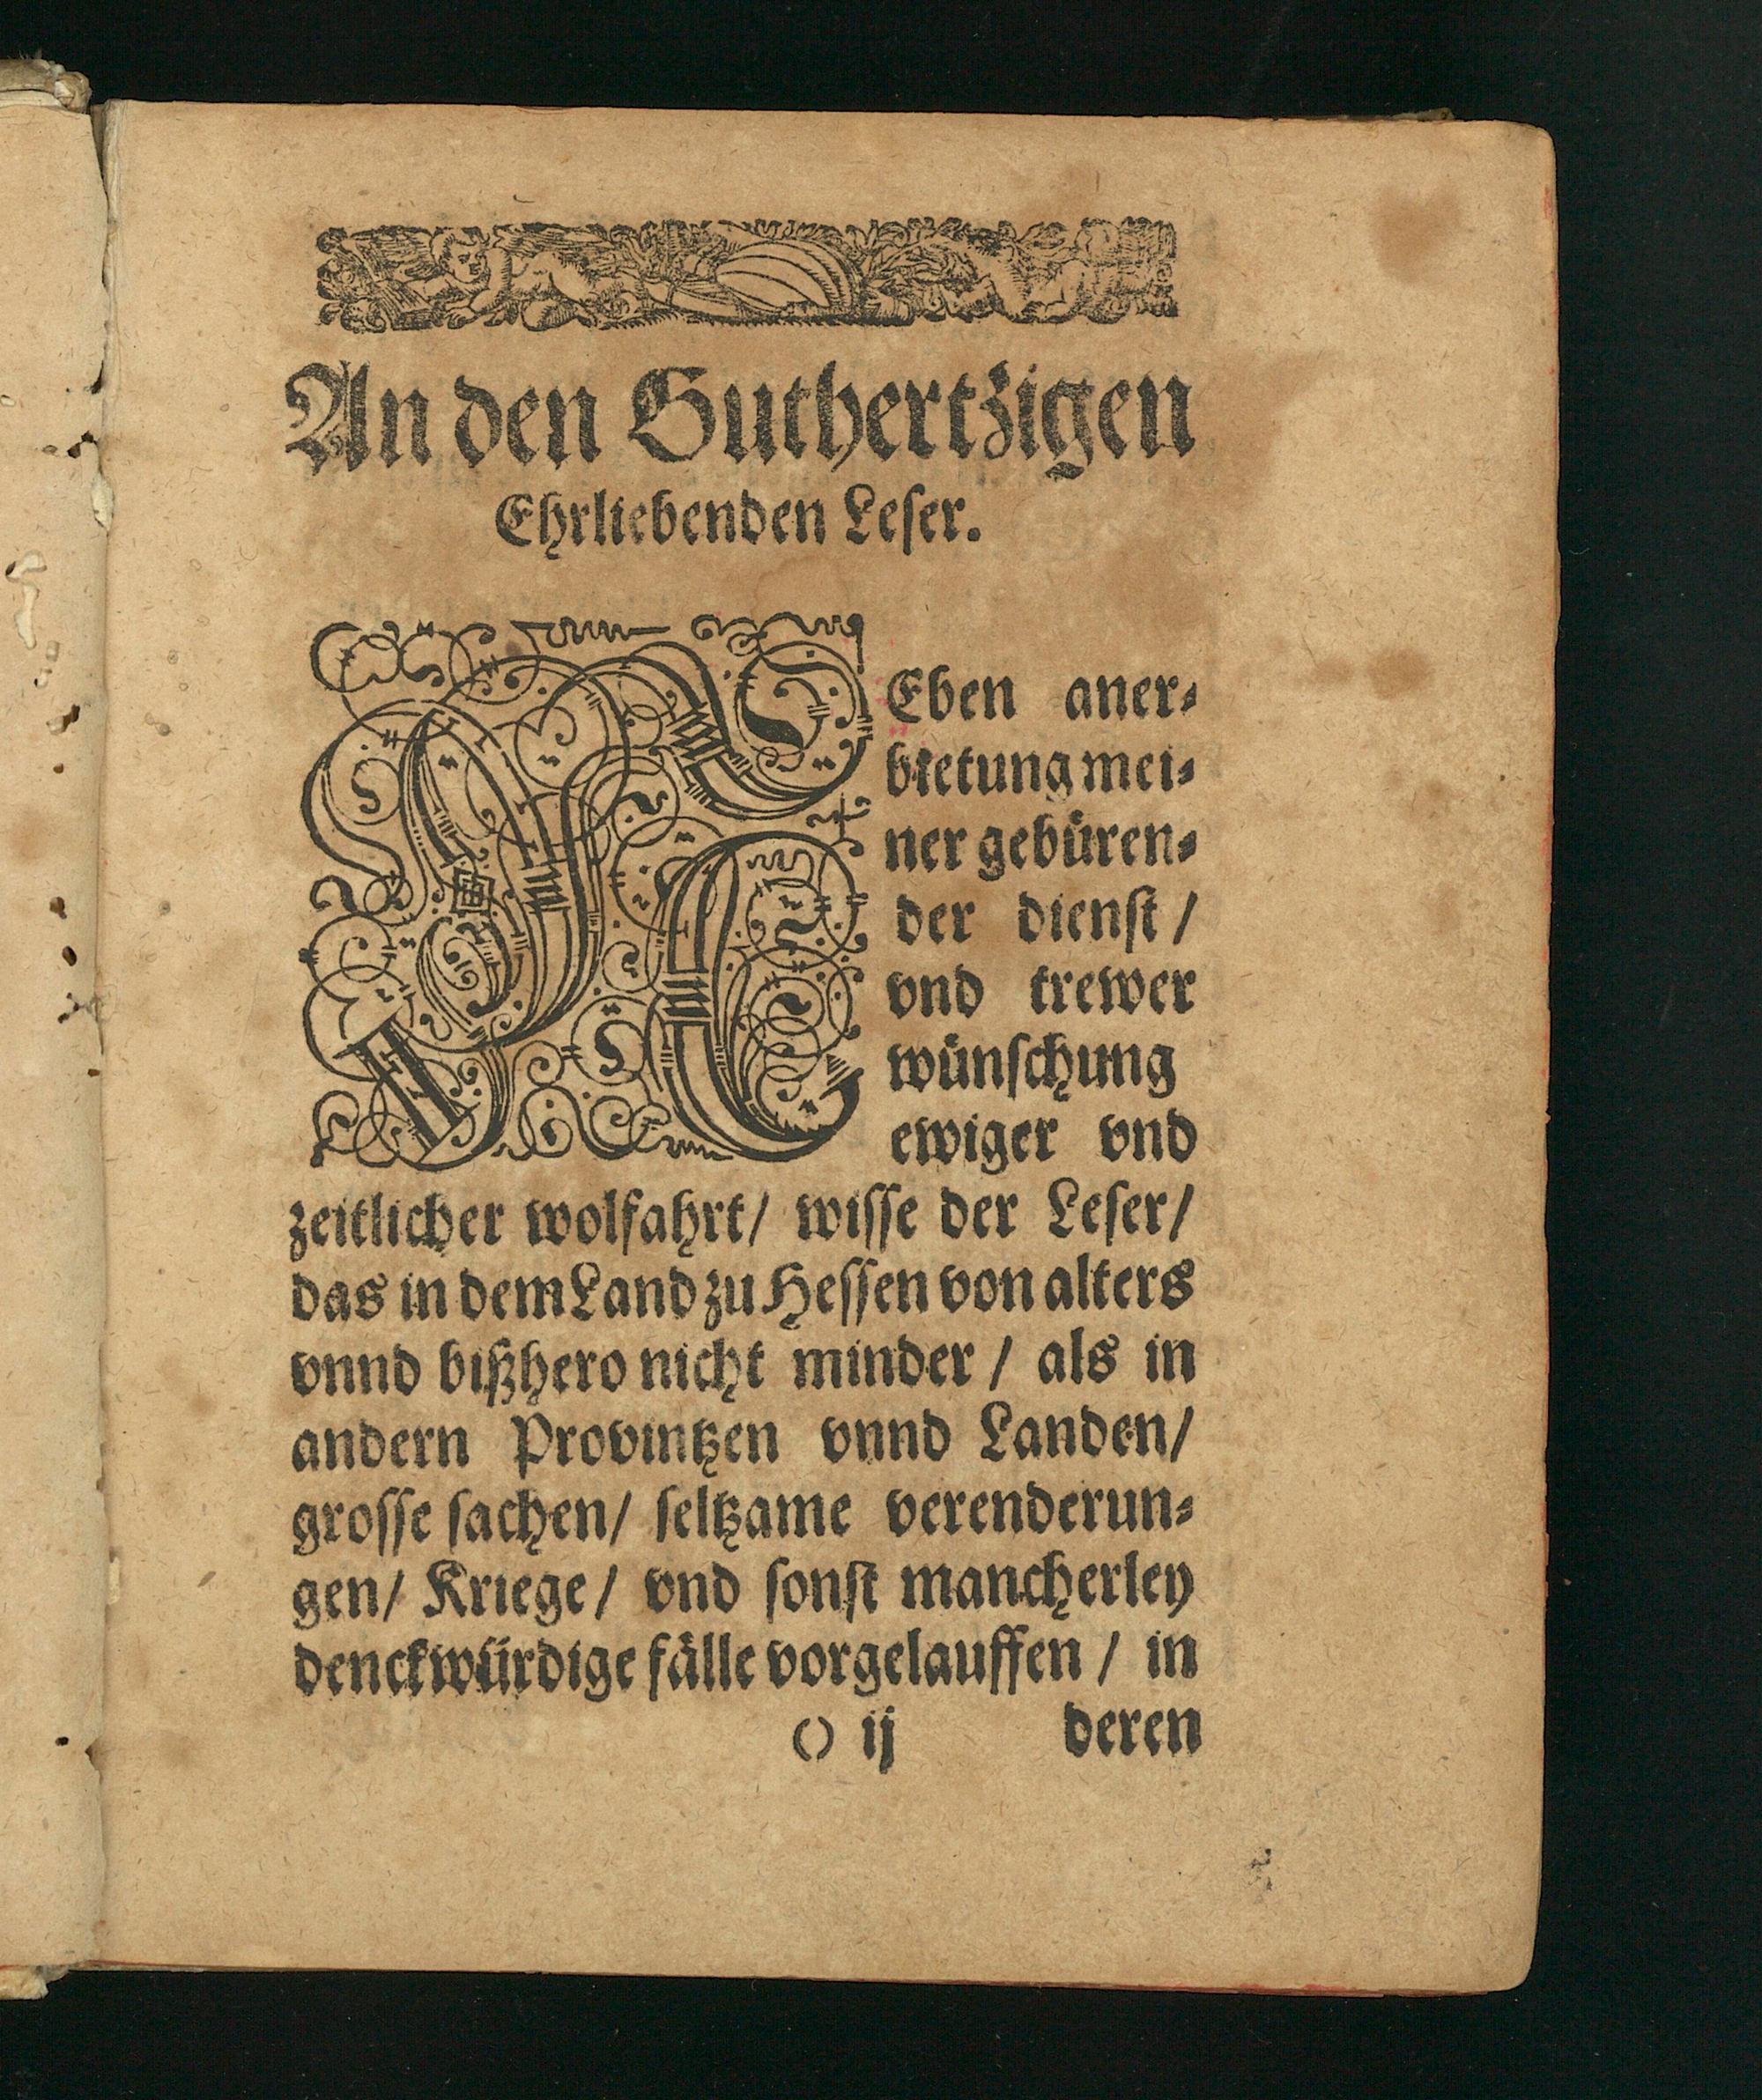 An den Guthertzigen
Ehrliebenden Leſer.
NEben aner⸗
bietung mei⸗
ner gebüren⸗
der dienſt /
vnd trewer
wünſchung
ewiger vnd
zeitlicher wolfahrt / wiſſe der Leſer /
das in dem Land zu Heſſen von alters
vnnd bißhero nicht minder / als in
andern Provintzen vnnd Landen /
groſſe ſachen / ſeltzame verenderun⸗
gen / Kriege / vnd ſonſt mancherley
denckwürdige fälle vorgelauffen / in
() ij deren